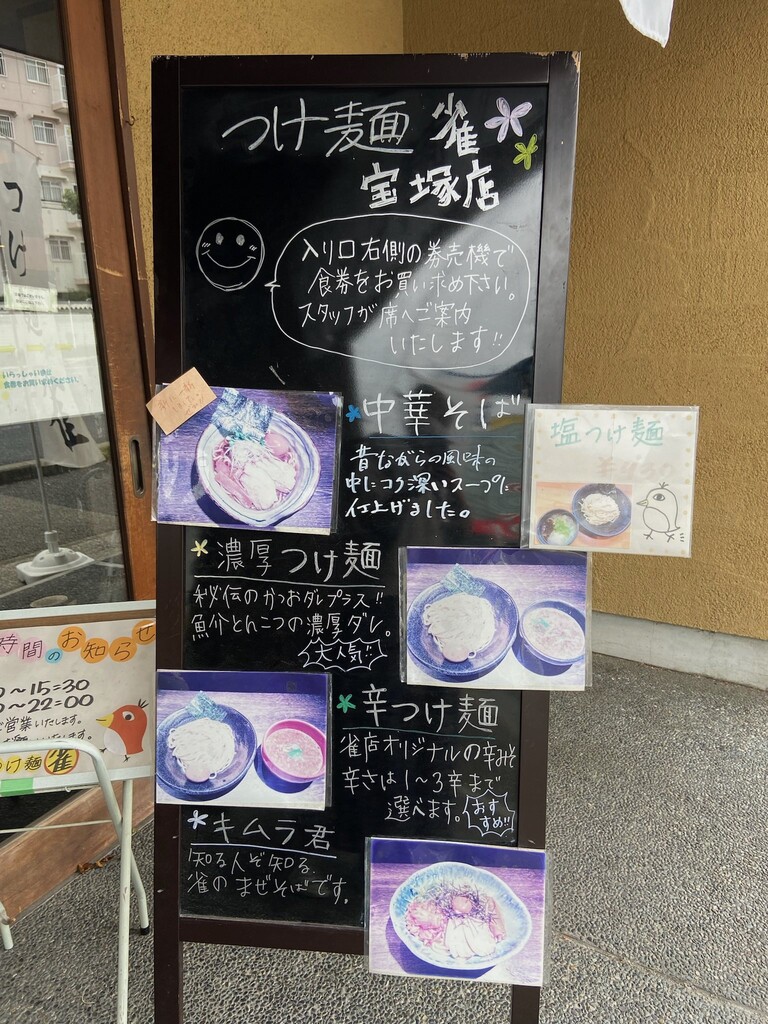 つけ麺 雀
宝塚店
入り口右側の券売機で
食券をお買い求め下さい。
スタッフが席へご案内
いたします!!
中華そば
昔ながらの風味の
中にコク深いスープに
仕上げました。
塩つけ麺
濃厚つけ麺
秘伝のかつおダレプラス!!
魚介とんこつの濃厚ダレ。
大人気!!
辛つけ麺
雀店オリジナルの辛みそ
辛さは1〜3辛まで
選べます。
おす
すめ!!
キムラ君
知る人ぞ知る
雀のまぜそばです。
時間のお知らせ
〜15:30
〜22:00
営業いたします。
つけ麺 雀
つけ
いらっしゃいませ
食券をお買い求めください。